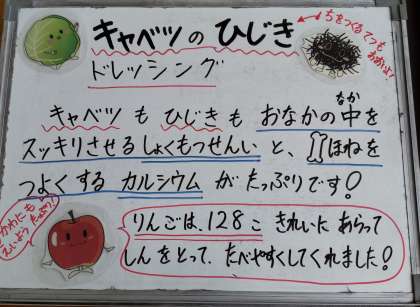 キャベツのひじき
ちをつくるてつもおおいよ!
ドレッシング
キャベツもひじきもおなかの中を
なか
スッキリさせるしょくもつせんいと、ほねを
つよくするカルシウムがたっぷりです!
かわにも
えいよう
たっぷり!
りんごは、128こ きれいにあらって
しんをとって、たべやすくしてくれました!